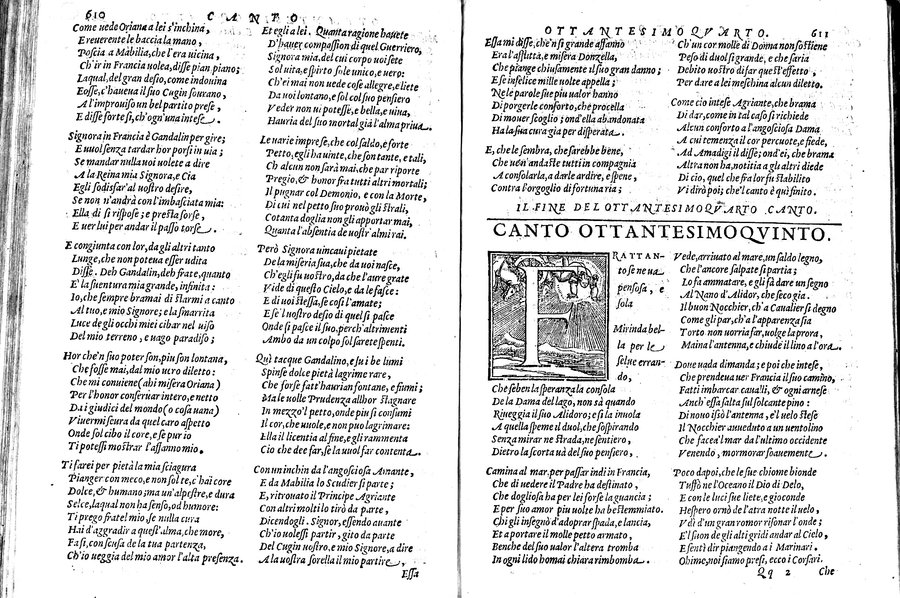 610 CANTO
Come uede Oriana a lei s'inchina,
E reuerente le baccia la mano,
Poscia a Mabilia, che l'era uicina,
Ch'ir in Francia uolea, disse pian piano;
Laqual, del gran desio, come indouina
Fosse, c'haueua il suo Cugin sourano,
A l'improuiso un bel partito prese,
E disse forte sì, ch'ogn'una intese.
Signora in Francia è Gandalin per gire;
E uuol senza tardar hor porsi in uia;
Se mandar nulla uoi uolete a dire
A la Reina mia Signora, e Cia
Egli sodisfar al uostro desire,
Se non u'andrà con l'imbasciata mia:
Ella di sì rispose; e presta forse,
E uer lui per andar il passo torse.
E congiunta con lor, da gli altri tanto
Lunge, che non poteua esser udita
Disse. Deh Gandalin, deh frate, quanto
E' la suentura mia grande, infinita:
Io, che sempre bramai di starmi a canto
Al tuo, e mio Signore; e la smarrita
Luce de gli occhi miei cibar nel uiso
Del mio terreno, e uago paradiso;
Hor che'n suo poter son, piu son lontana,
Che fosse mai, dal mio uero diletto:
Ch'a mi conuiene (ahi misera Oriana)
Per l'honor conseruar intero, e netto
Da i giudici del mondo (o cosa uana)
Viuermi scura da quel caro aspetto
Onde sol cibo il core, e se pur io
Ti potessi mostrar l'affanno mio.
Ti farei per pietà la mia sciagura
Pianger con meco, e non sol te, c'hai core
Dolce, & humano; ma un'alpestre, e dura
Selce, laqual non ha senso, od humore:
Ti prego fratel mio, se nulla cura
Hai d'aggradir a quest'alma, che more,
Fa sì, con scusa de la tua partenza,
Ch'io ueggia del mio amor l'alta presenza.
Et egli a lei. Quanta ragione hauete
D'hauer compassion di quel Guerriero,
Signora mia, del cui corpo uoi sete
Sol uita, e spirto sole unico, e uero:
Ch'ei mai non uede cose allegre, e liete
Da uoi lontano, e sol col suo pensiero
Veder non ui potesse, e bella, e uiua,
Hauria del suo mortal già l'alma priua.
Le uarie imprese, che col saldo, e forte
Petto, egli ha uinte, che son tante, e tali,
Ch'alcun non sarà mai, che par riporte
Pregio, & honor fra tutti altri mortali;
Il pugnar col Demonio, e con la Morte,
Di cui nel petto suo prouò gli strali,
Cotanta doglia non gli apportar mai,
Quanta l'absentia de uostr'almi rai.
Però Signora ui ncaui pietate
De la miseria sua, che da uoi nasce,
Ch'egli fu uostro, da che l'aure grate
Vide di questo Cielo, e da le fasce:
E di uoi stessa, se così l'amate;
E se'l uostro desio di quel si pasce
Onde si pasce il suo, perch'altrimenti
Ambo da un colpo sol sarete spenti.
Quì tacque Gandalino, e su i be lumi
Spinse dolce pietà lagrime rare,
Che forse fatt'haurian fontane, e fiumi;
Ma le uolle Prudenza allhor stagnare
In mezzo'l petto, onde piu si consumi
Il cor, che uuole, e non puo lagrimare:
Ella il licentia al fine, e gli rammenta
Ciò che dee far, se la uuol far contenta.
Con un inchin da l'angosciosa Amante,
E da Mabilia lo Scudier si parte;
E, ritrouato il Principe Agriante
Con altri molti lo tirò da parte,
Dicendogli. Signor, essendo auante
Ch'io uolessi partir, gito da parte
Del Cugin uostro, e mio Signore, a dire
A la uostra sorella il mio partire,
Essa
OTTANTESIMOQVARTO. 611
Essa mi disse, che'n sì grande affanno
Era l'afflitta, e misera Donzella,
Che piange chiusamente il suo gran danno;
E se infelice mille uolte appella;
Ne le parole sue piu ualor hanno
Di porgerle conforto, che procella
Di mouer scoglio; ond'ella abandonata
Ha la sua cura già per disperata.
E, che le sembra, che sarebbe bene,
Che uen'andaste tutti in compagnia
A consolarla, a darle ardire, e spene,
Contra l'orgoglio di fortuna ria;
Ch'un cor molle di Donna non sostiene
Peso di duol sì grande, e che saria
Debito uostro di far quest'effetto,
Per dare a lei meschina alcun diletto.
Come ciò intese Agriante, che brama
Di dar, come in tal caso si richiede
Alcun conforto a l'angosciosa Dama
A cui temenza il cor percuote, e fiede,
Ad Amadigi il disse; ond'ei, che brama
Altra non ha, notitia a gli altri diede
Di ciò, quel che fra lor fu stabilito
Vi dirò poi; che'l canto è quì finito.
IL FINE DEL OTTANTESIMOQVARTO CANTO.
CANTO OTTANTESIMOQVINTO.
FRATTAN-
to se ne ua
pensosa, e
sola
Mirinda bel-
la per le
selue erran-
do,
Che se ben la speranza la consola
De la Dama del lago, non sà quando
Riueggia il suo Alidoro; e sì la inuola
A quella speme il duol, che sospirando
Senza mirar ne strada, ne sentiero,
Dietro la scorta uà del suo pensiero.
Camina al mar, per passar indi in Francia,
Che di uedere il Padre ha destinato,
Che dogliosa ha per lei forse la guancia;
E per suo amor piu uolte ha bestemmiato.
Chi gli insegnò d'adoprar spada, e lancia,
Et a portare il molle petto armato,
Benche del suo ualor l'altera tromba
In ogni lido homai chiara rimbomba.
Vede, arriuato al mare, un saldo legno,
Che l'ancore salpate si partia;
Lo fa ammattare, e gli fà dare un segno
Al Nano d'Alidor, che seco gia.
Il buon Nocchier, ch'a Caualier sì degno
Come gli par, ch'a l'apparenza sia
Torto non uorria far, uolge la prora,
Maina l'antenna, e chiude il lino a l'ora.
Doue uada dimanda; e poi che intese,
Che prendeua uer Francia il suo camino,
Fatti imbarcar caualli, & ogni arnese
Anch'essa salta sul solcante pino:
Di nouo issò l'antenna, e'l uelo stese
Il Nocchier auueduto a un uentolino
Che facea'l mar da l'ultimo occidente
Venendo, mormorar soauemente.
Poco dapoi, che le sue chiome bionde
Tuffò ne l'Oceano il Dio di Delo,
E con le luci sue liete, e gioconde
Hespero ornò de l'atra notte il uelo,
Vdì d'un gran romor risonar l'onde;
E'l suon de gli alti gridi andar al Cielo,
E sentì dir piangendo a i Marinari.
Ohime, noi siamo presi, ecco i Corsari.
Qq 2 Che